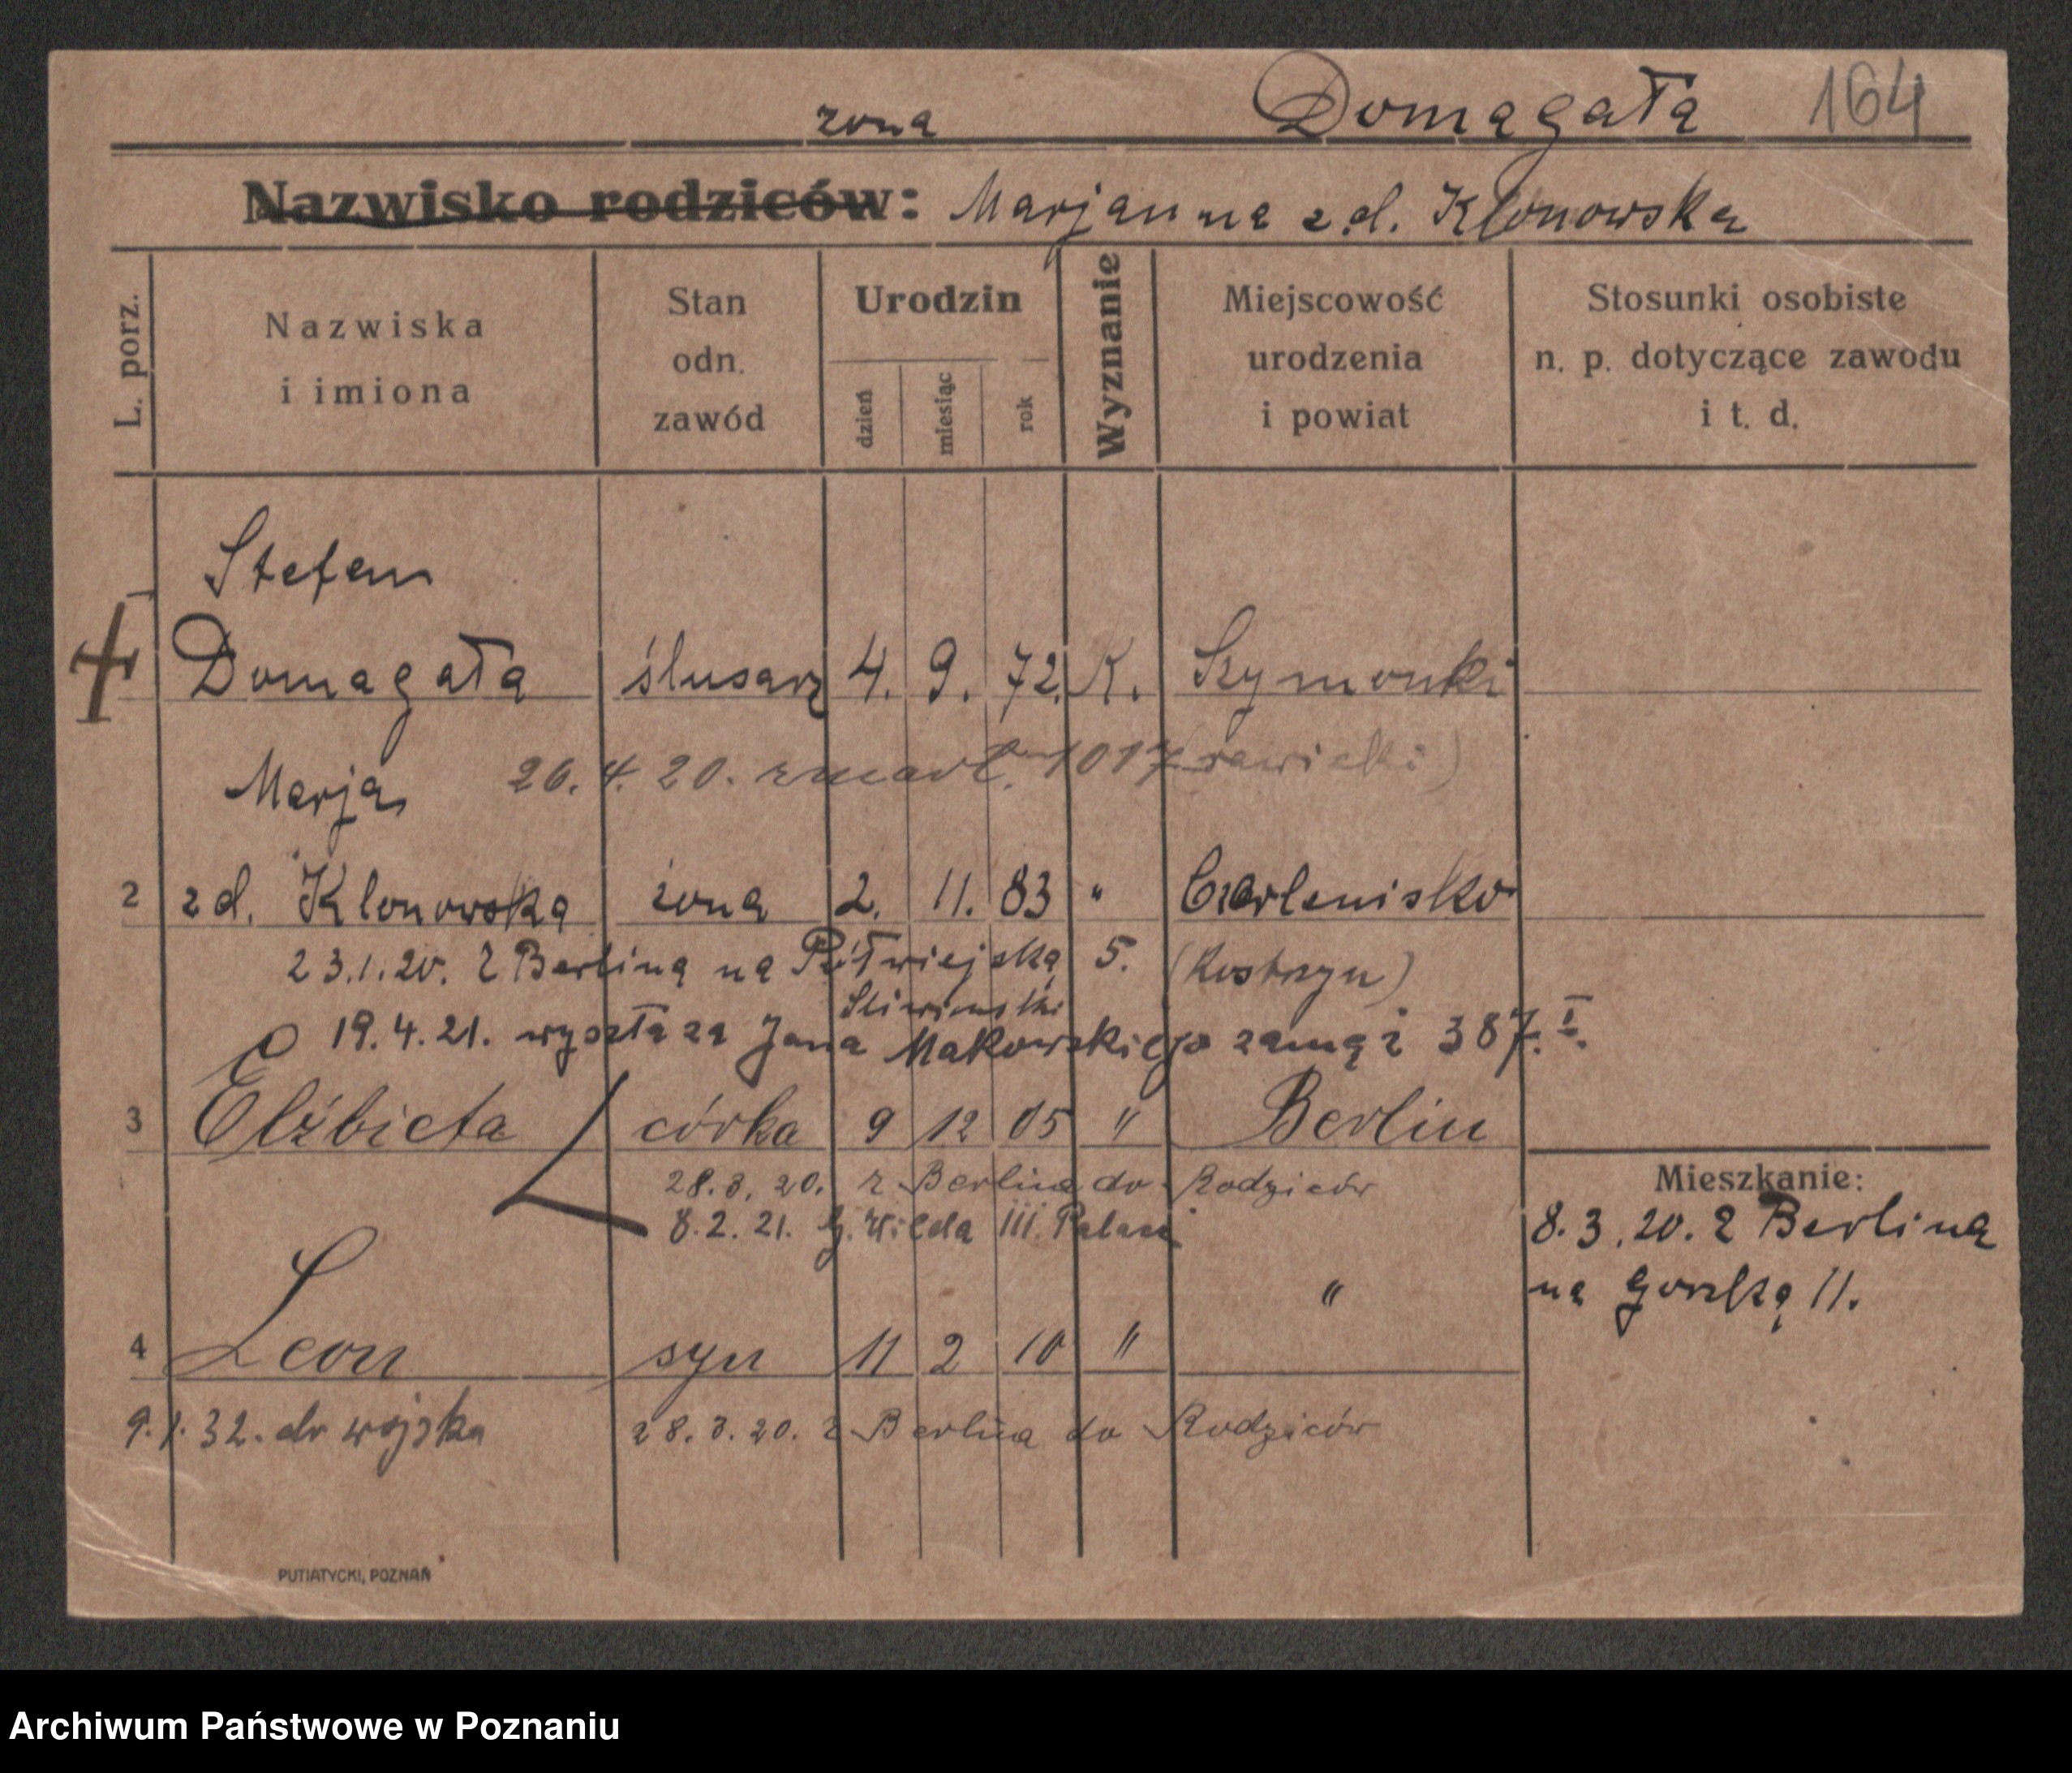 żona Domagała 164
Nazwisko rodziców: Marjanna z d. Klonowska
L. porz.
Nazwiska
i imiona
Stan
odn.
zawód
Urodzin
dzień
miesiąc
rok
Wyznanie
Miejscowość
urodzenia
i powiat
Stosunki osobiste
n. p. dotyczące zawodu
i t. d.
Stefan
Domagała ślusarz 4. 9. 72. K. Szymonki
Marja 26. 4. 20. zmarł. 1017
2 z d. Klonowska żona 2. 11. 83 " Czerlenisko
23.1.20. z Berlina na Półwiejską 5. (Kostrzyn)
19.4.21. wyszła za Jana Makowskiego zamąż 387. I.
3 Elżbieta córka 9 12 05 " Berlin
28.3.20. z Berlina do Rodziców
8.2.21. G. Wilda 111.
4 Leon syn 11 2 10 " "
9.1.32. do wojska 28.3.20. z Berlina do Rodziców
Mieszkanie:
8.3.20. z Berlina
na 11.
PUTIATYCKI, POZNAŃ
Archiwum Państwowe w Poznaniu